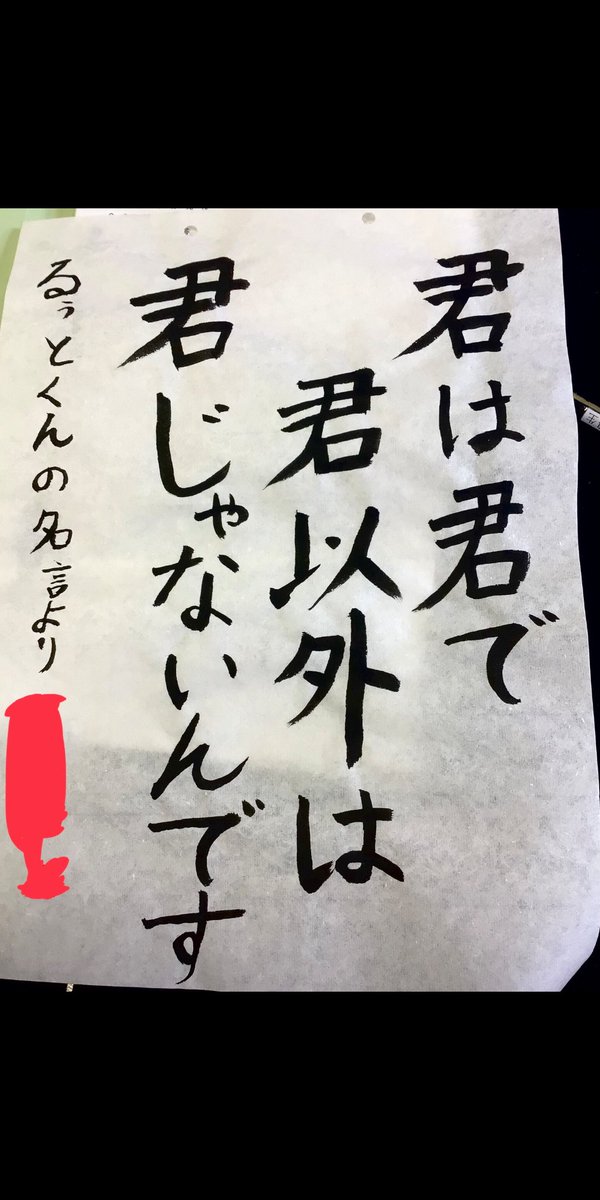 君は君で
君以外は
君じゃないんです
るぅとくんの名言より